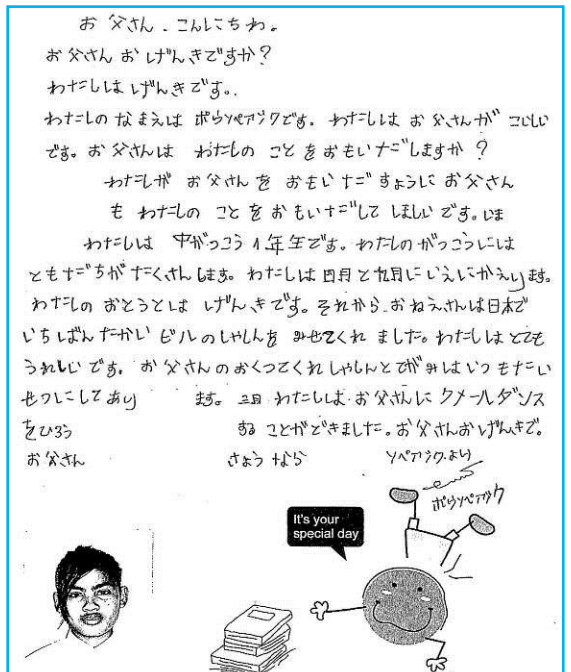 お父さん.こんにちわ。
お父さんおげんきですか?
わたしはげんきです。
わたしのなまえはポウソペアクです。わたしはお父さんがこいしい
です。お父さんは わたしの ことをおもいだしますか?
わたしが お父さんを おもいだすように お父さん
も わたしの ことをおもいだして ほしいです。いま
わたしは 中がっこう1年生です。わたしのがっこうには
ともだちがたくさんします。わたしは四月と九月にいえにかえります。
わたしの おとうとは げんきです。それから.おねえさんは日本で
いちばんたかい ビルのしゃしんを みせてくれました。わたしはとても
うれしいです。お父さんのおくってくれしゃしんとてがみはいつもたい
せつにしてあり ます。三日 わたしは.お父さんに クメールダンス
をひろう する ことができました。お父さんおげんきで。
お父さん さようなら ソペアクより
ポウソペアック
It's your
special day